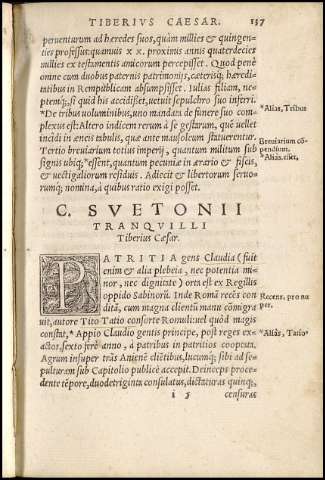 TIBERIVS CAESAR. 137
peruenturam ad hæredes suos, quàm millies & quingen-
ties professus: quamuis xx. proximis annis quaterdecies
millies ex testamentis amicorum percepisset. Quod penè
omne cum duobus paternis patrimonijs, cæterisq; hæredi-
tatibus in Rempublicam absumpsisset. Iulias filiam, ne-
ptemq;, si quid his accidisset, uetuit sepulchro suo inferri.
*De tribus uoluminibus, uno mandata de funere suo com- *Aliâs, Tribus
plexus est: Altero indicem rerum à se gestarum, quē uellet
incidi in æneis tabulis, quæ ante mausoleum statuerentur.
Tertio breuiarium totius imperij, quantum militum sub Breuiarium cō-
pendium.
signis ubiq; *essent, quantum pecuniæ in ærario & fiscis, *Aliâs, esset,
& uectigaliorum residuis. Adiecit & libertorum seruo-
rumq; nomina, à quibus ratio exigi posset.
C. SVETONII
TRANQVILLI
Tiberius Cæsar.
PATRITIA gens Claudia (fuit
enim & alia plebeia, nec potentia mi-
nor, nec dignitate) orta est ex Regillis
oppido Sabinorū. Inde Romā recēs con- Recens, pro nu
per.
ditā, cum magna clientū manu cōmigra
uit, autore Tito *Tatio consorte Romuli: uel quòd magis *Aliâs, Tatio
constat, Appio Claudio gentis principe, post reges ex-
actos, sexto ferè anno, à patribus in patritios cooptata.
Agrum insuper trās Anienē cliētibus, locumq; sibi ad se-
pulturam sub Capitolio publicè accepit. Deinceps proce-
dente tēpore, duodetriginta consulatus, dictaturas quinq;,
i 5 censuras